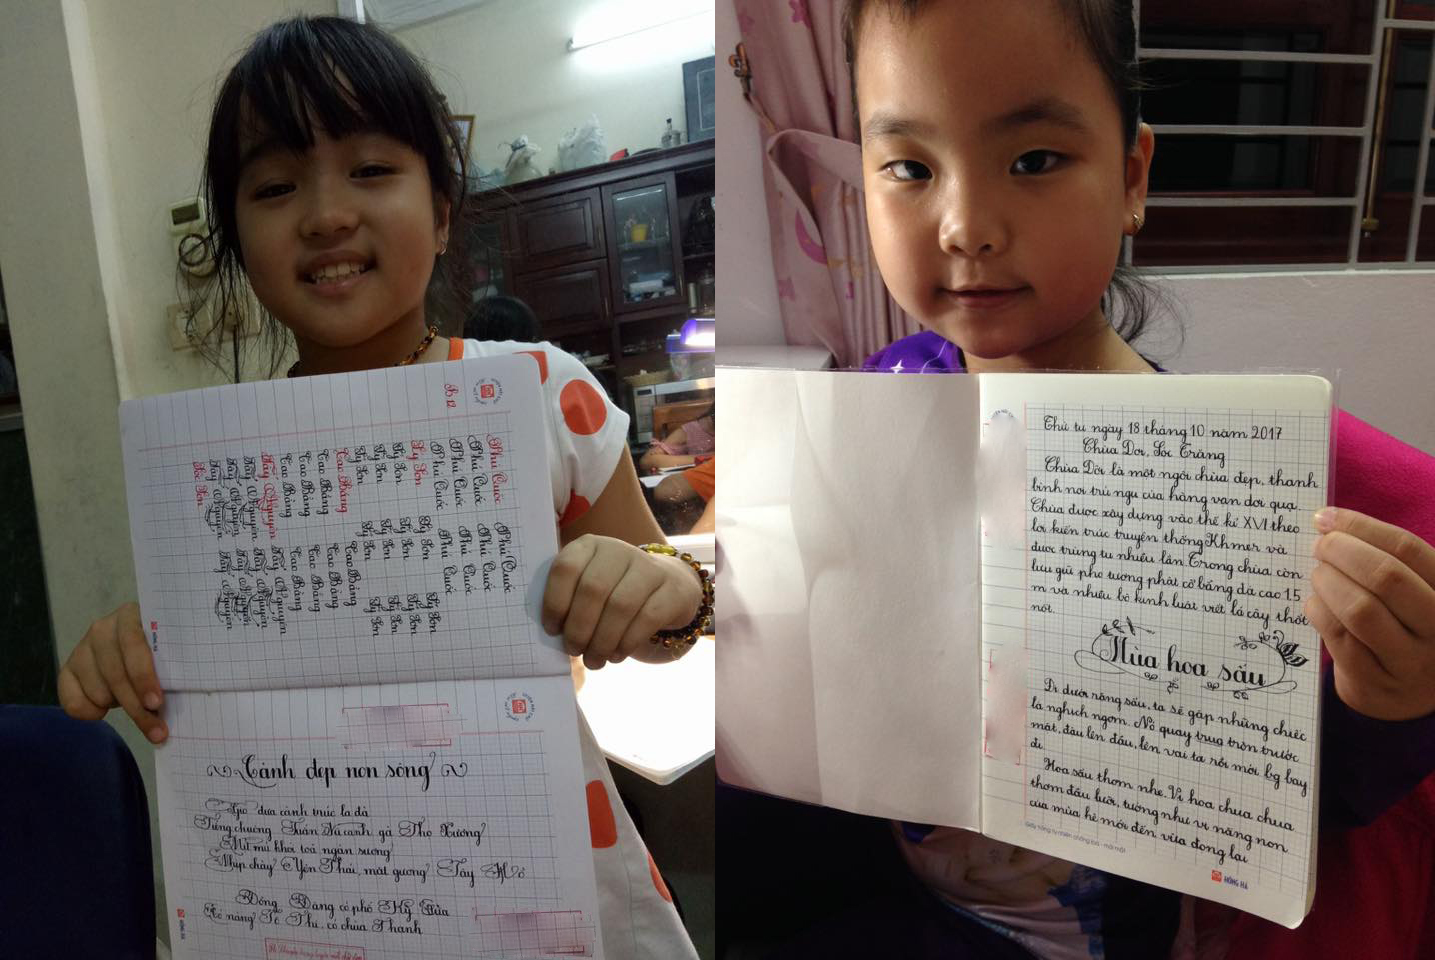 B12
Phú Quốc Phú Quốc
Phú Quốc Phú Quốc
Phú Quốc Phú Quốc
Phú Quốc Phú Quốc
Lý Sơn Lý Sơn Lý Sơn
Lý Sơn Lý Sơn Lý Sơn
Lý Sơn Lý Sơn Lý Sơn
Cao Bằng Cao Bằng
Cao Bằng Cao Bằng
Cao Bằng Cao Bằng
Cao Bằng Cao Bằng
Tây Nguyên Tây Nguyên
Tây Nguyên Tây Nguyên
Tây Nguyên Tây Nguyên
Tây Nguyên Tây Nguyên
HỒNG HÀ
Cảnh đẹp non sông
Gió đưa cành trúc la đà
Tiếng chuông Trấn Vũ canh gà Thọ Xương
Mịt mù khói toả ngàn sương
Nhịp chày Yên Thái, mặt gương Tây Hồ
Đồng Đăng có phố Kỳ Lừa
Có nàng Tô Thị, có chùa Thanh
HỒNG HÀ
Thứ tư ngày 18 tháng 10 năm 2017
Chùa Dơi, Sóc Trăng
Chùa Dơi là một ngôi chùa đẹp, thanh
bình nơi trú ngụ của hàng vạn dơi quạ.
Chùa được xây dựng vào thế kỉ XVI theo
lối kiến trúc truyền thống Khmer và
được trùng tu nhiều lần. Trong chùa còn
lưu giữ pho tượng phật cổ bằng đá cao 1,5
m và nhiều bộ kinh luật viết lá cây thốt
nốt.
Mùa hoa sấu
Đi dưới rặng sấu, ta sẽ gặp những chiếc
lá nghịch ngợm. Nó quay tròn trước
mặt, đậu lên đầu, lên vai ta rồi mới bay
đi.
Hoa sấu thơm nhẹ. Vị hoa chua chua
thấm đầu lưỡi, tưởng như vị nắng non
của mùa hè mới đến vừa đọng lại
HỒNG HÀ